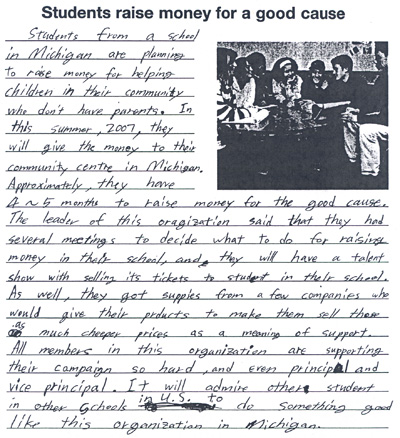 Students raise money for a good cause
Students from a school
in Michigan are planning
to raise money for helping
children in their community
who don't have parents. In
this summer, 2007, they
will give the money to their
community centre in Michigan.
Approximately, they have
4 ~ 5 months to raise money for the good cause.
The leader of this oragization said that they had
several meetings to decide what to do for raising
money in their school, and they will have a talent
show with selling its tickets to student in their school.
As well, they got suppies from a few companies who
would give their products to make them sell those
as much cheeper prices as a meaning of support.
All members in this organization are supporting
their campaign so hard, and even principal and
vice principal. It will admire other student
in other schools in U.S. to do something good
like this organization in Michigan.